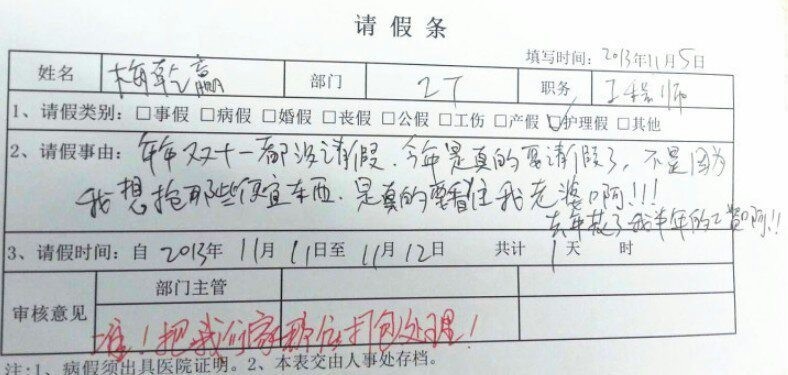 请假条
填写时间: 2013年11月5日
姓名 梅乾赢 部门 IT 职务 工程师
1、请假类别: □事假 □病假 □婚假 □丧假 □公假 □工伤 □产假 ☑护理假 □其他
2、请假事由: 年年双十一都没请假,今年是真的要请假了,不是因为
我想抢那些便宜东西,是真的要看住我老婆啊!!!
去年花了我半年的工资啊!!
3、请假时间: 自 2013年 11月 11日至 11月 12日 共计 1 天 时
审核意见 部门主管
准!把我们家那位打包处理!
注:1、病假须出具医院证明。2、本表交由人事处存档。